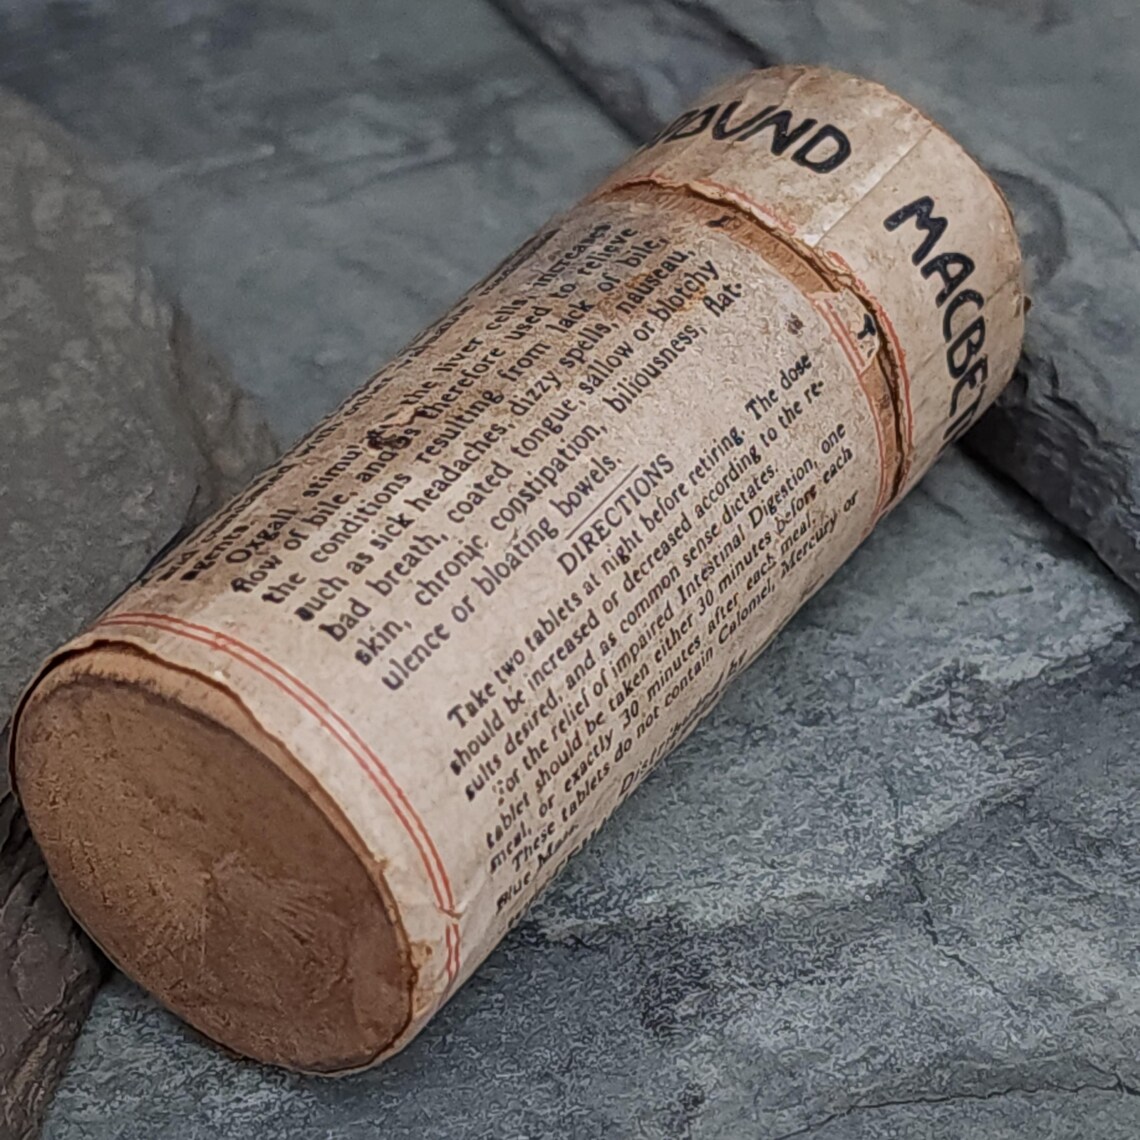 OUND MACBE
agents
Oxgall stimulates the liver cells, increases
flow of bile, and is therefore used to relieve
the conditions resulting from lack of bile,
such as sick headaches, dizzy spells, nauseau,
bad breath, coated tongue sallow or blotchy
skin, chronic constipation, biliousness, flat-
ulence or bloating bowels.
DIRECTIONS
Take two tablets at night before retiring. The dose
should be increased or decreased according to the re-
sults desired, and as common sense dictates.
For the relief of impaired Intestinal Digestion, one
tablet should be taken either 30 minutes before each
meal, or exactly 30 minutes after each meal.
These tablets do not contain Calomel, Mercury or
Blue Mass.
Distributed by